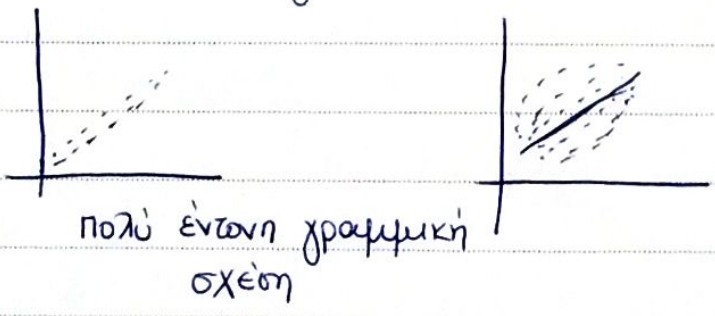 πολύ έντονη γραμμική
σχέση